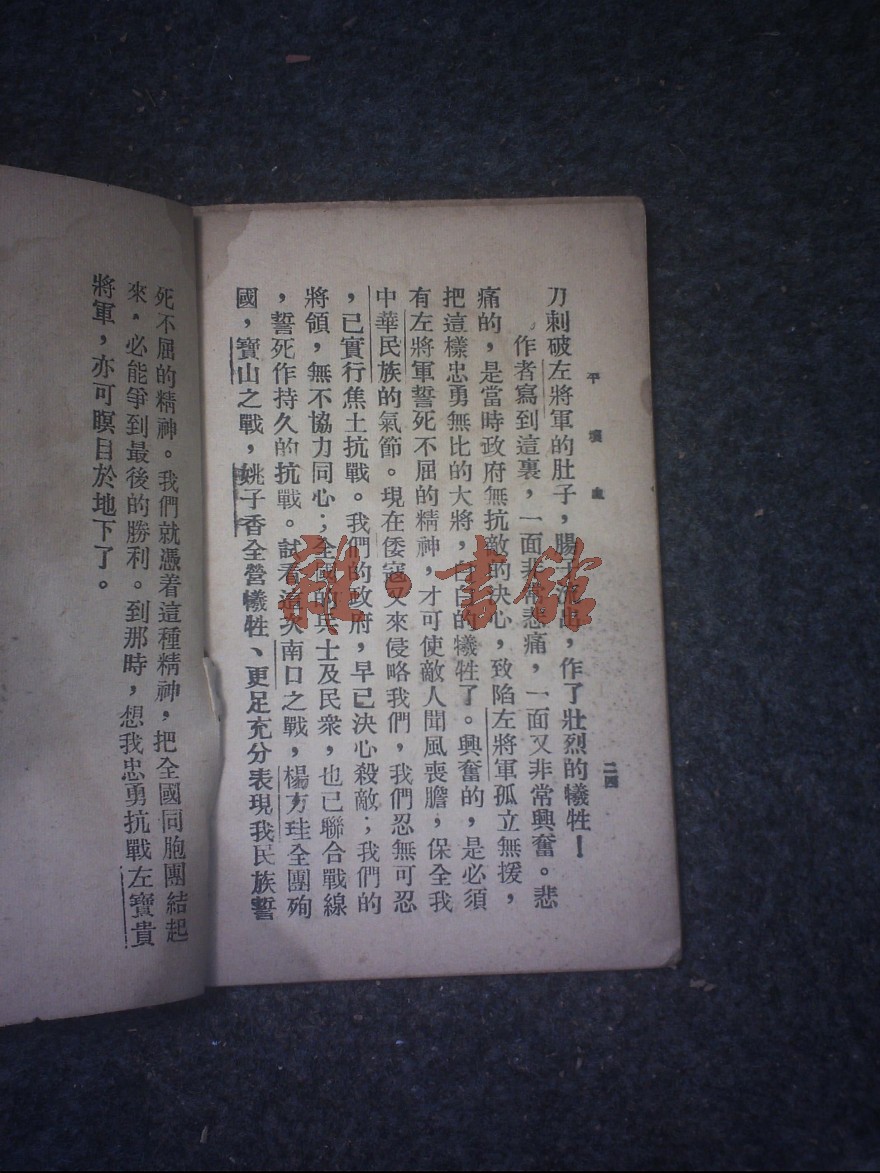 平壤血
二四
刀刺破左將軍的肚子，腸子流出，作了壯烈的犧牲！
作者寫到這裏，一面非常悲痛，一面又非常興奮。悲
痛的，是當時政府無抗敵的決心，致陷左將軍孤立無援，
把這樣忠勇無比的大將，白白的犧牲了。興奮的，是必須
有左將軍誓死不屈的精神，才可使敵人聞風喪膽，保全我
中華民族的氣節。現在倭寇又來侵略我們，我們忍無可忍
，已實行焦土抗戰。我們的政府，早已決心殺敵；我們的
將領，無不協力同心；全國的兵士及民衆，也已聯合戰線
，誓死作持久的抗戰。試看這次南口之戰，楊方珪全團殉
國，寶山之戰，姚子香全營犧牲、更足充分表現我民族誓
死不屈的精神。我們就憑着這種精神，把全國同胞團結起
來，必能爭到最後的勝利。到那時，想我忠勇抗戰左寶貴
將軍，亦可瞑目於地下了。
雜·書館